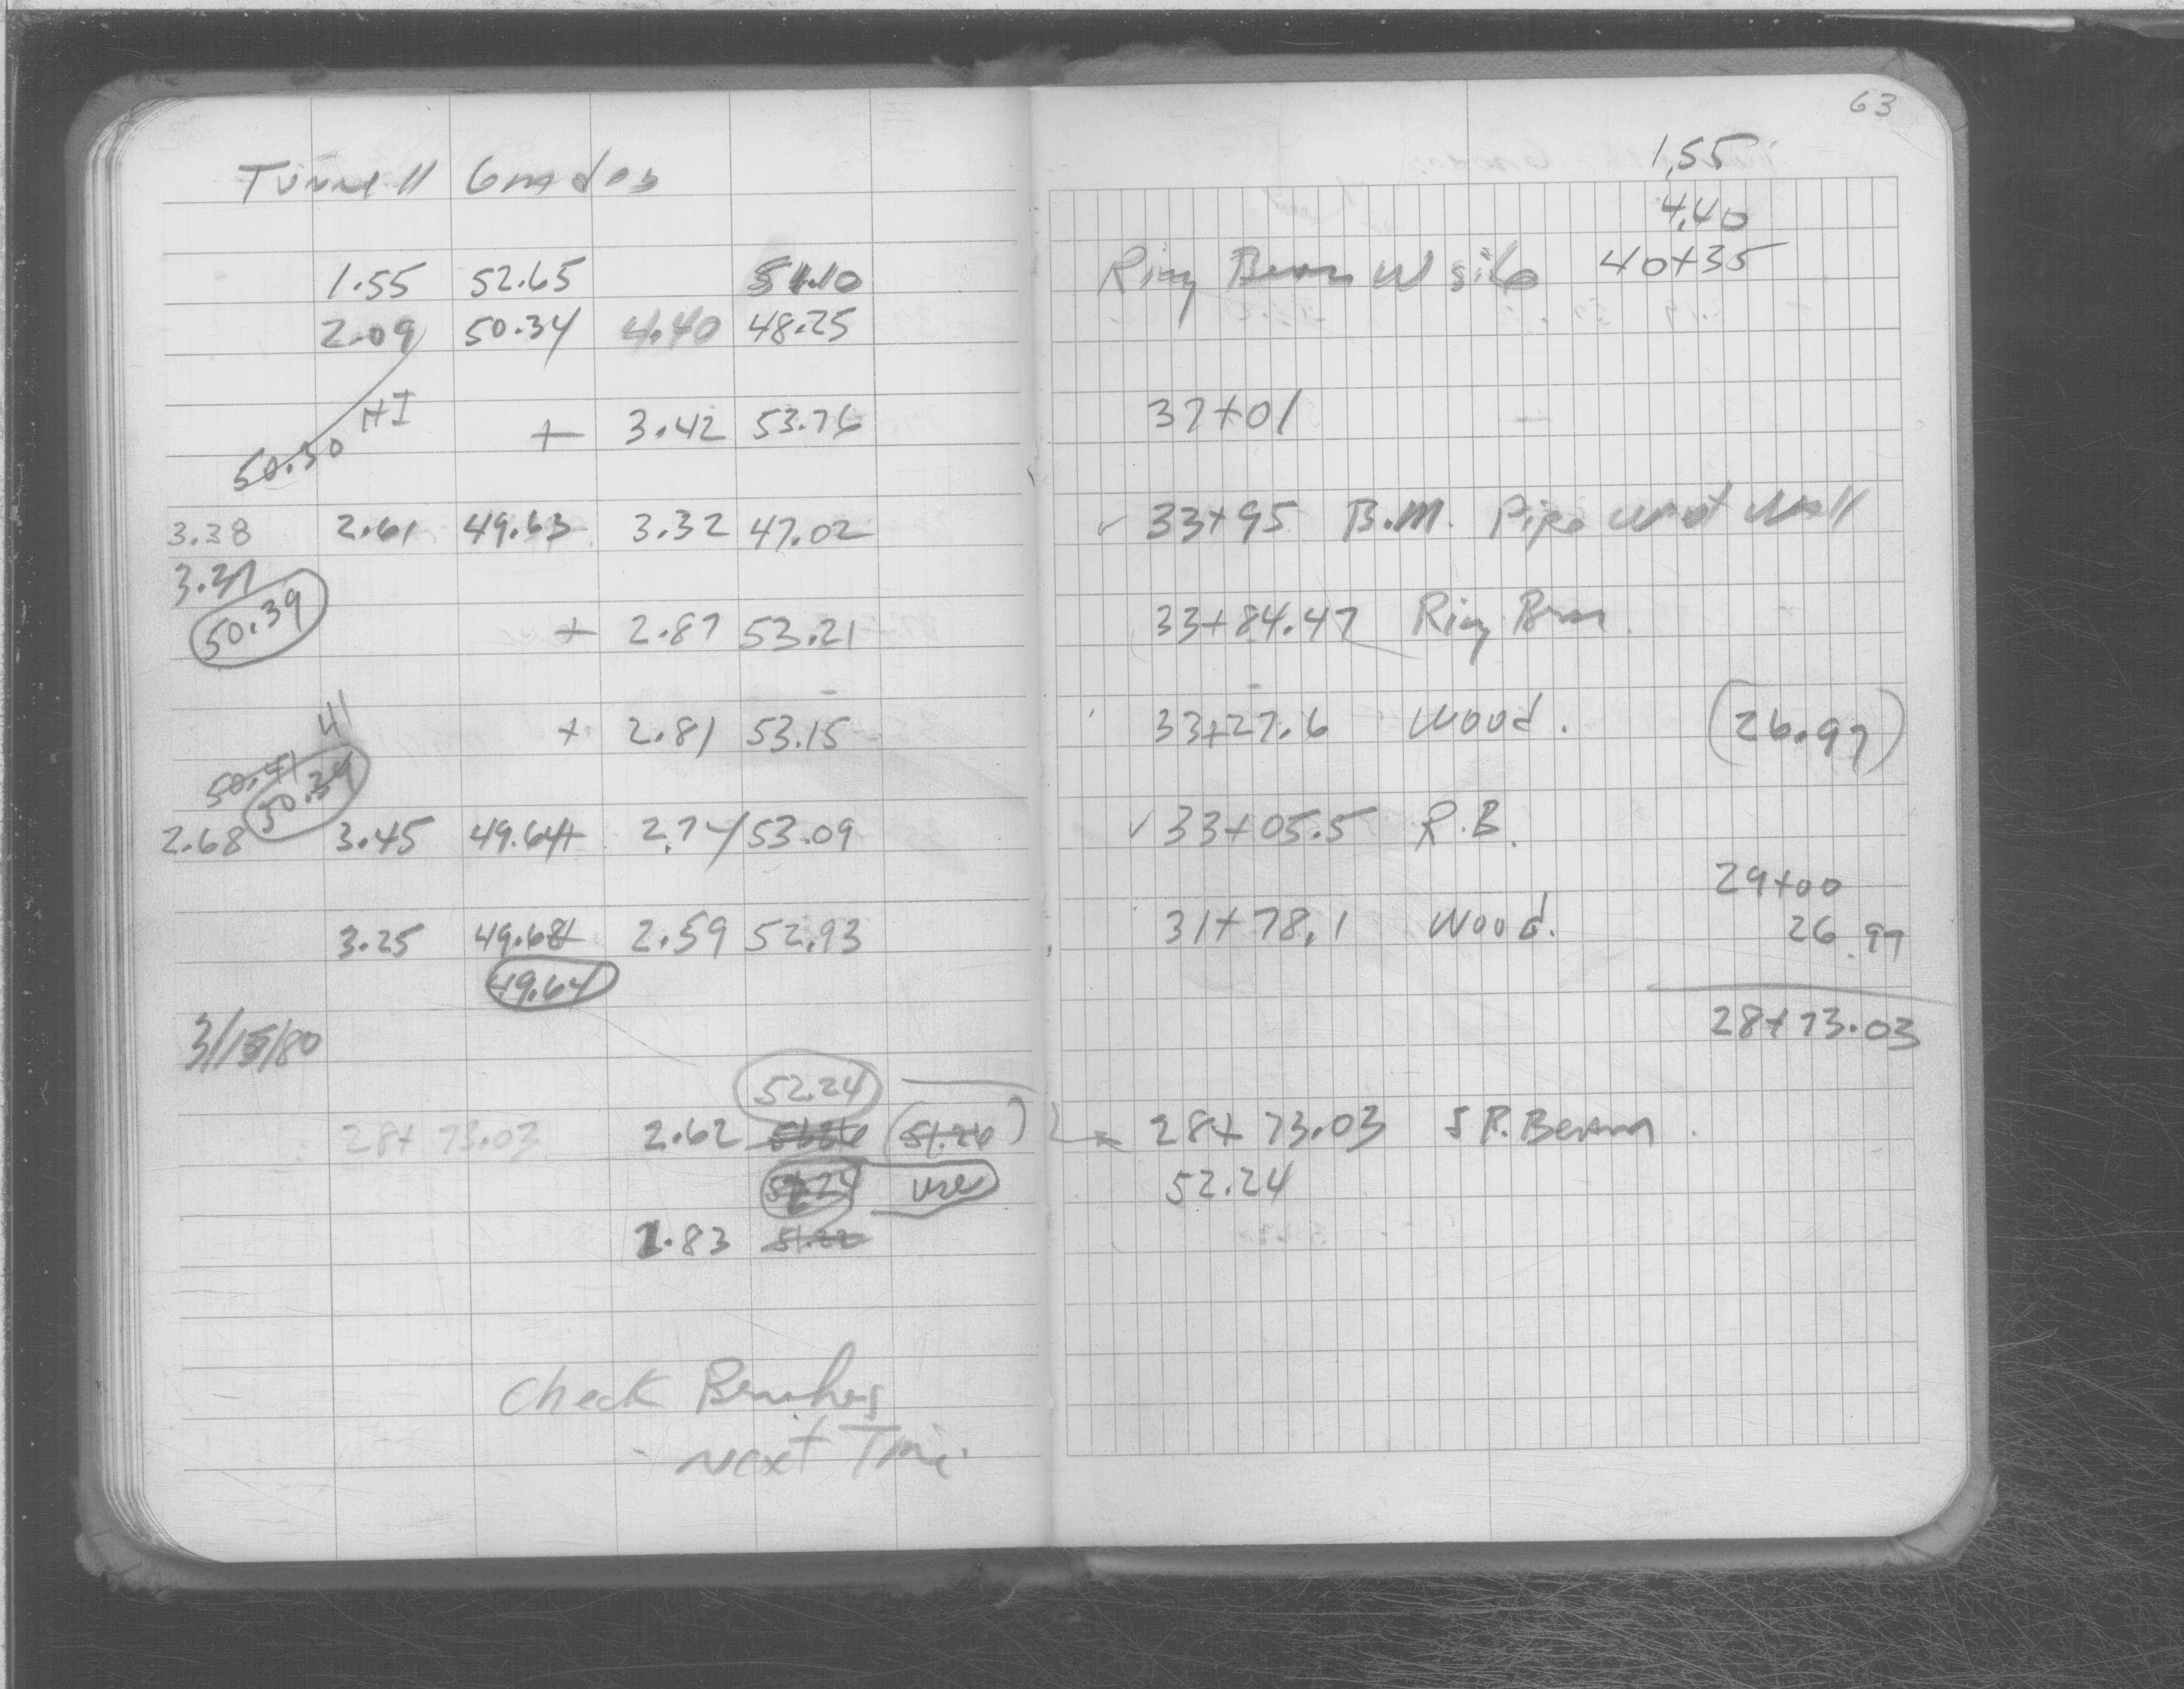 Tunnell Grades
1.55 52.65 51.10
2.09 50.34 4.40 48.25
HI
50.30
+ 3.42 53.76
3.38 2.61 49.63 3.32 47.02
3.37
50.39
+ 2.87 53.21
41
+ 2.81 53.15
50.41
50.39
2.68 3.45 49.64+ 2.74 53.09
3.25 49.68+ 2.59 52.93
49.64
3/15/80
52.24
28+73.03 2.62 (51.26)
use
1.83 51.22
Check Benches
Next Time
63
1.55
4.40
Ring Beam W side 40+35
37+01
✓ 33+95 B.M. Pipe West Wall
33+84.47 Ring Bm
33+27.6 Wood. (26.97)
✓ 33+05.5 R.B.
29+00
31+78.1 Wood. 26.97
28+73.03
28+73.03 S R. Beam
52.24